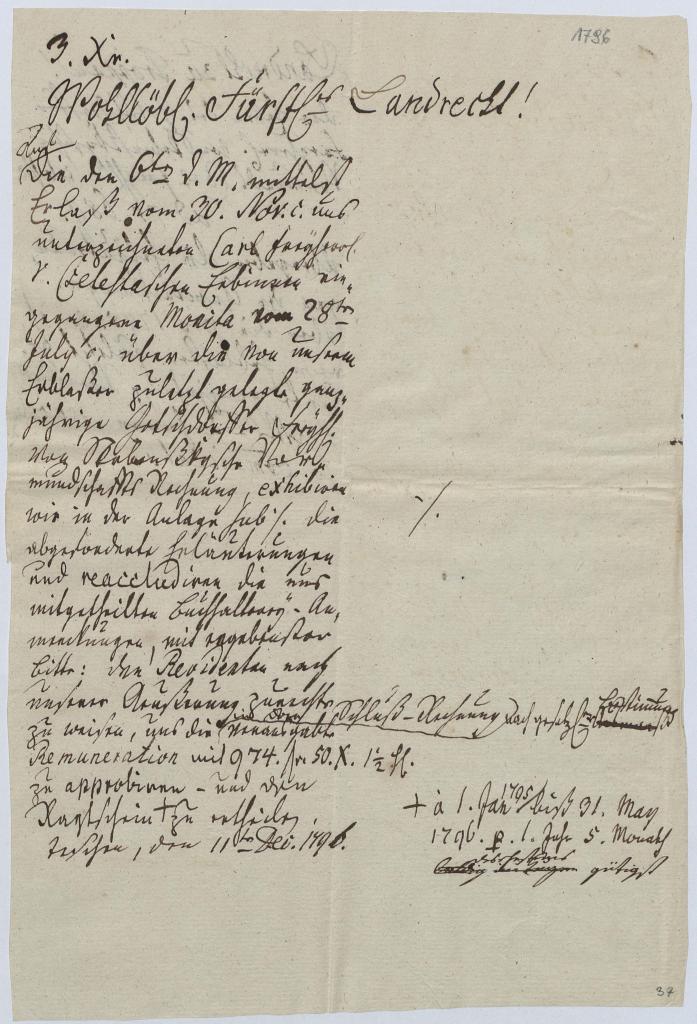 1796
3. Xr.
Wohllöbl. Fürstl. Landrecht!
Die den 6ten d. M. mittelst
Erlaß vom 30. Nov. c. uns
unterzeichneten Carl Freyherrl.
v. Czelestaschen Erbinnen ein-
gegangene Monita vom 28ten
July c. über die von unserm
Erblaßer zuletzt gelegte ganz-
jährige Freyh.
von Skrbenskysche Vor-
mundschafts Rechnung, exhibiren
wir in der Anlage sub /. die
abgeforderte Erläuterungen
und reaccludiren die uns
mitgetheilten Buchhalterey-An-
merckungen, mit ergebenster
Bitte: den Revidenten nach
unserer Äußerung zurecht
zu weisen, uns die Schluß-Rechnung nach
Remuneration mit 974. fr 50. X. 1½ hl.
zu approbiren - und den
+ zu ertheilen.
Teschen, den 11ten Dec. 1796.
/.
+ à 1. Jan 1795 biß 31. May
1796. p. 1. Jahr 5. Monath
gütigst
37